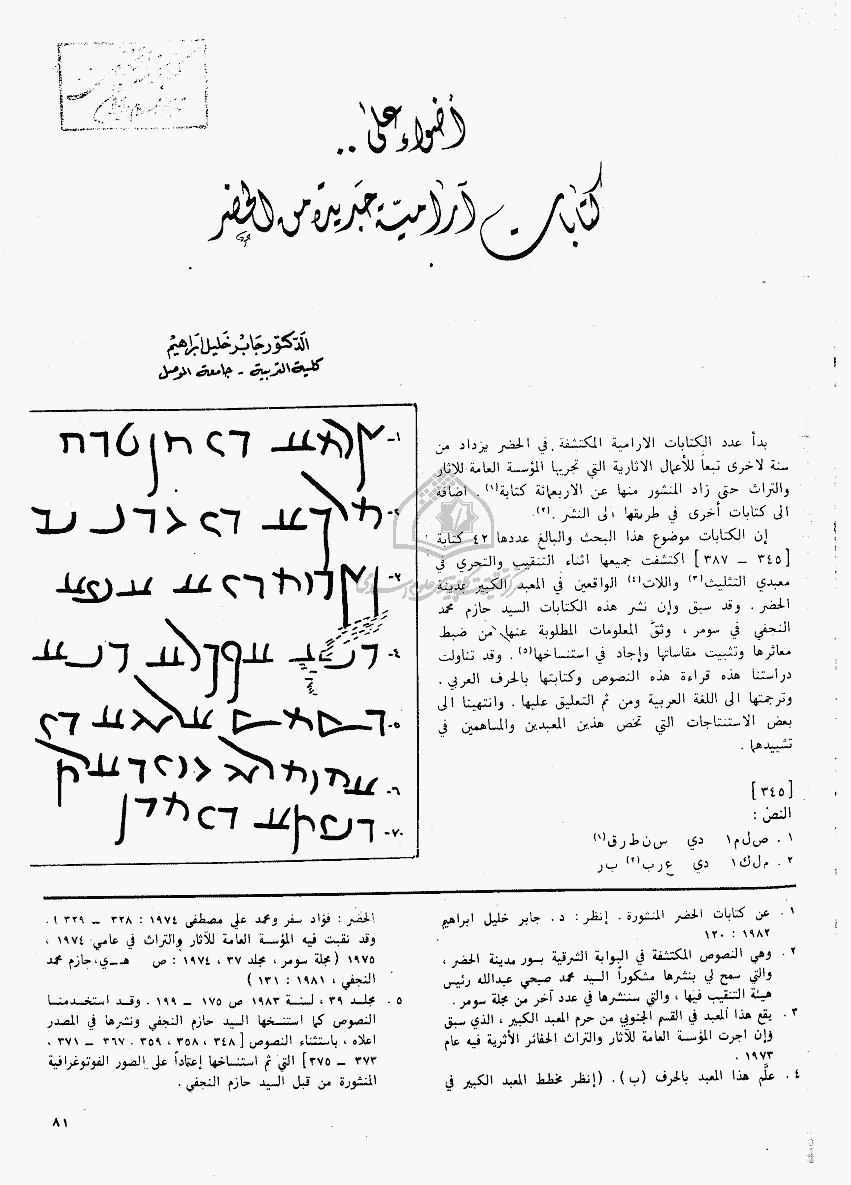 أضواء على ..
كتابات آرامية جديدة من الحضر
الدكتور جابر خليل ابراهيم
كلية التربية - جامعة الموصل
بدأ عدد الكتابات الارامية المكتشفة في الحضر يزداد من
سنة لاخرى تبعاً للأعمال الاثارية التي تجريها المؤسسة العامة للآثار
والتراث حتى زاد المنشور منها عن الاربعمائة كتابة(١) . اضافة
الى كتابات أخرى في طريقها الى النشر .(٢).
إن الكتابات موضوع هذا البحث والبالغ عددها ٤٢ كتابة
[ ٣٤٥ – ٣٨٧ ] اكتشفت جميعها اثناء التنقيب والتحري في
معبدي التثليث(٣) واللات(٤) الواقعين في المعبد الكبير بمدينة
الحضر . وقد سبق وإن نشر هذه الكتابات السيد حازم محمد
النجفي في سومر ، وثق المعلومات المطلوبة عنها من ضبط
معاثرها وتثبيت مقاساتها وإجاد في استنساخها(٥) . وقد تناولت
دراستنا هذه قراءة هذه النصوص وكتابتها بالحرف العربي .
وترجمتها الى اللغة العربية ومن ثم التعليق عليها . وانتهينا الى
بعض الاستنتاجات التي تخص هذين المعبدين والمساهمين في
تشييدهما .
[ ٣٤٥ ]
النص :
١ . ص ل م ا دي س ن ط ر ق(١)
٢ . م ل ك ا دي ع ر ب(٢) ب ر
١-
٢-
٣-
٤-
٥-
٦-
٧-
١ . عن كتابات الحضر المنشورة . إنظر : د . جابر خليل ابراهيم
١٩٨٢ : ١٢٠
٢ . وهي النصوص المكتشفة في البوابة الشرقية بسور مدينة الحضر ،
والتي سمح لي بنشرها مشكوراً السيد محمد صبحي عبدالله رئيس
هيئة التنقيب فيها ، والتي سننشرها في عدد آخر من مجلة سومر .
٣ . يقع هذا المعبد في القسم الجنوبي من حرم المعبد الكبير ، الذي سبق
وإن اجرت المؤسسة العامة للآثار والتراث الحفائر الأثرية فيه عام
١٩٧٣ .
٤ . علّم هذا المعبد بالحرف (ب) . (إنظر مخطط المعبد الكبير في
الحضر : فؤاد سفر ومحمد علي مصطفى ١٩٧٤ : ٣٢٨ – ٣٢٩ ) .
وقد نقبت فيه المؤسسة العامة للآثار والتراث في عامي ١٩٧٤ ،
١٩٧٥ (مجلة سومر ، مجلد ٣٧ ، ١٩٧٤ : ص هـ - ي ، حازم محمد
النجفي ، ١٩٨١ : ١٣١ )
٥ . مجلد ٣٩ ، لسنة ١٩٨٣ ص ١٧٥ – ١٩٩ . وقد استخدمنا
النصوص كما استنسخها السيد حازم النجفي ونشرها في المصدر
اعلاه ، باستثناء النصوص [ ٣٤٨ ، ٣٥٨ ، ٣٥٩ . ٣٦٧ – ٣٧١ ،
٣٧٣ – ٣٧٥ ] التي تم استنساخها إعتماداً على الصور الفوتوغرافية
المنشورة من قبل السيد حازم النجفي .
٨١